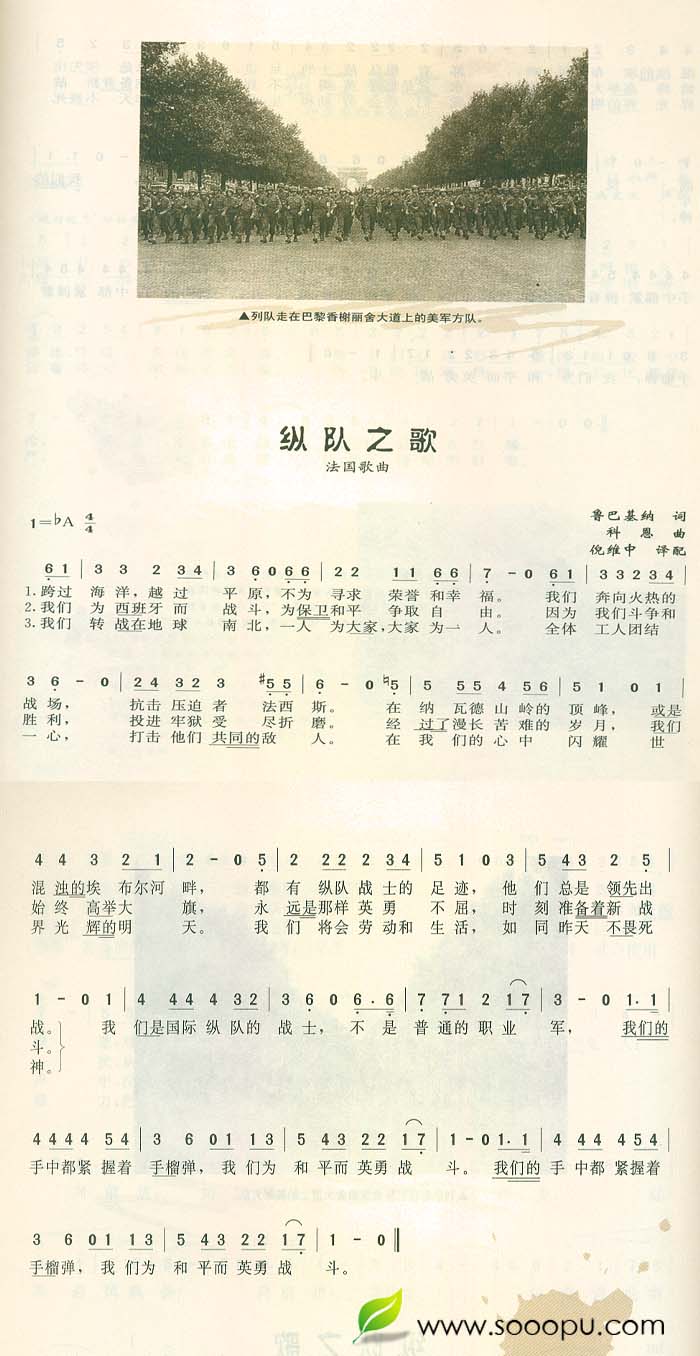 ▲列队走在巴黎香榭丽舍大道上的美军方队。
纵队之歌
法国歌曲
1=♭A 4/4
鲁巴基纳 词
科恩 曲
倪维中 译配
6 1 | 3 3 2 3 4 | 3 6 0 6 6 | 2 2 2 1 1 6 6 | 7 - 0 6 1 | 3 3 2 3 3 4 |
1.跨过 海洋，越过 平原，不为 寻求 荣誉 和幸 福。 我们 奔向火热的
2.我们 为西班牙而 战斗，为保卫和平 争取自 由。 因为 我们斗争和
3.我们 转战在地球 南北，一人 为大家，大家为一 人。 全体 工人团结
3 6 - 0 | 2 4 3 2 3 ♯5 5 | 6 - 0 ♮5 | 5 5 5 4 5 6 | 5 1 0 1 |
战场， 抗击压迫者 法西 斯。 在 纳瓦德山岭的 顶峰，或是
胜利， 投进牢狱受 尽折 磨。 经 过了漫长苦难的 岁月，我们
一心， 打击他们共同的敌 人。 在 我们的心中 闪耀 世
4 4 3 2 1 | 2 - 0 5 | 2 2 2 2 3 4 | 5 1 0 3 | 5 4 3 2 5 |
混浊的埃布尔河 畔， 都 有纵队战士的 足迹，他 们总是领先出
始终高举大 旗， 永 远是那样英勇 不屈，时 刻准备着新战
界光辉的明 天。 我 们将会劳动和 生活，如 同昨天不畏死
1 - 0 1 | 4 4 4 4 3 2 | 3 6 0 6 . 6 | 7 7 1 2 1 7 | 3 - 0 1 . 1 |
战。 我 们是国际纵队的 战士，不是 普通的职业 军， 我们的
斗。
神。
4 4 4 4 5 4 | 3 6 0 1 1 3 | 5 4 3 2 2 1 7 | 1 - 0 1 . 1 | 4 4 4 4 5 4 |
手中都紧握着 手榴弹，我们为 和平而英勇战 斗。我们的 手中都紧握着
3 6 0 1 1 3 | 5 4 3 2 2 1 7 | 1 - 0 ‖
手榴弹，我们为 和平而英勇战 斗。
www.sooopu.com